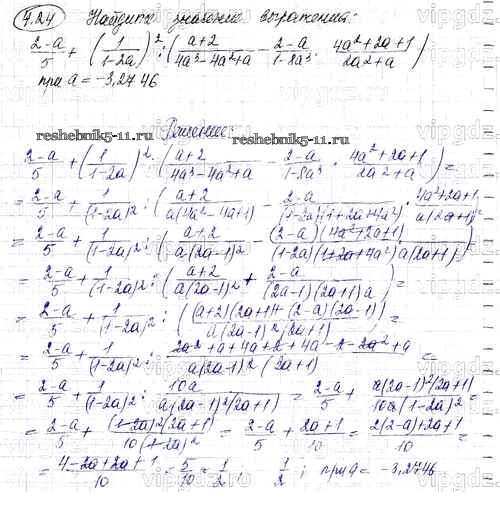 4.24 Найдите значение выражения:
(2-a)/5 + (1/(1-2a))² : ((a+2)/(4a³-4a²+a) - (2-a)/(1-8a³) · (4a²+2a+1)/(2a²+a))
при a = -3,2746
Решение:
reshebnik5-11.ru reshebnik5-11.ru
(2-a)/5 + (1/(1-2a))² : ((a+2)/(4a³-4a²+a) - (2-a)/(1-8a³) · (4a²+2a+1)/(2a²+a)) =
= (2-a)/5 + 1/(1-2a)² : ((a+2)/(a(4a²-4a+1)) - (2-a)/((1-2a)(1+2a+4a²)) · (4a²+2a+1)/(a(2a+1))) =
= (2-a)/5 + 1/(1-2a)² : ((a+2)/(a(2a-1)²) - ((2-a)(4a²+2a+1))/((1-2a)(1+2a+4a²)a(2a+1))) =
= (2-a)/5 + 1/(1-2a)² : ((a+2)/(a(2a-1)²) + (2-a)/((2a-1)(2a+1)a)) =
= (2-a)/5 + 1/(1-2a)² : (((a+2)(2a+1)+(2-a)(2a-1))/(a(2a-1)²(2a+1))) =
= (2-a)/5 + 1/(1-2a)² : (2a²+a+4a+2+4a-2-2a²+a)/(a(2a-1)²(2a+1)) =
= (2-a)/5 + 1/(1-2a)² : 10a/(a(2a-1)²(2a+1)) = (2-a)/5 + (a(2a-1)²(2a+1))/(10a(1-2a)²) =
= (2-a)/5 + ((1-2a)²(2a+1))/(10(1-2a)²) = (2-a)/5 + (2a+1)/10 = (2(2-a)+2a+1)/10 =
= (4-2a+2a+1)/10 = 5/10 = 1/2 ; 1/2 ; при a = -3,2746